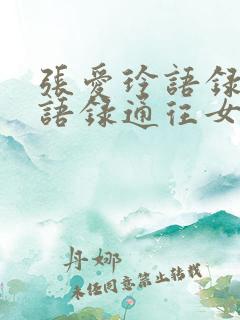 張愛玲語錄
語錄通往女
丹娜
未经同意禁止转载